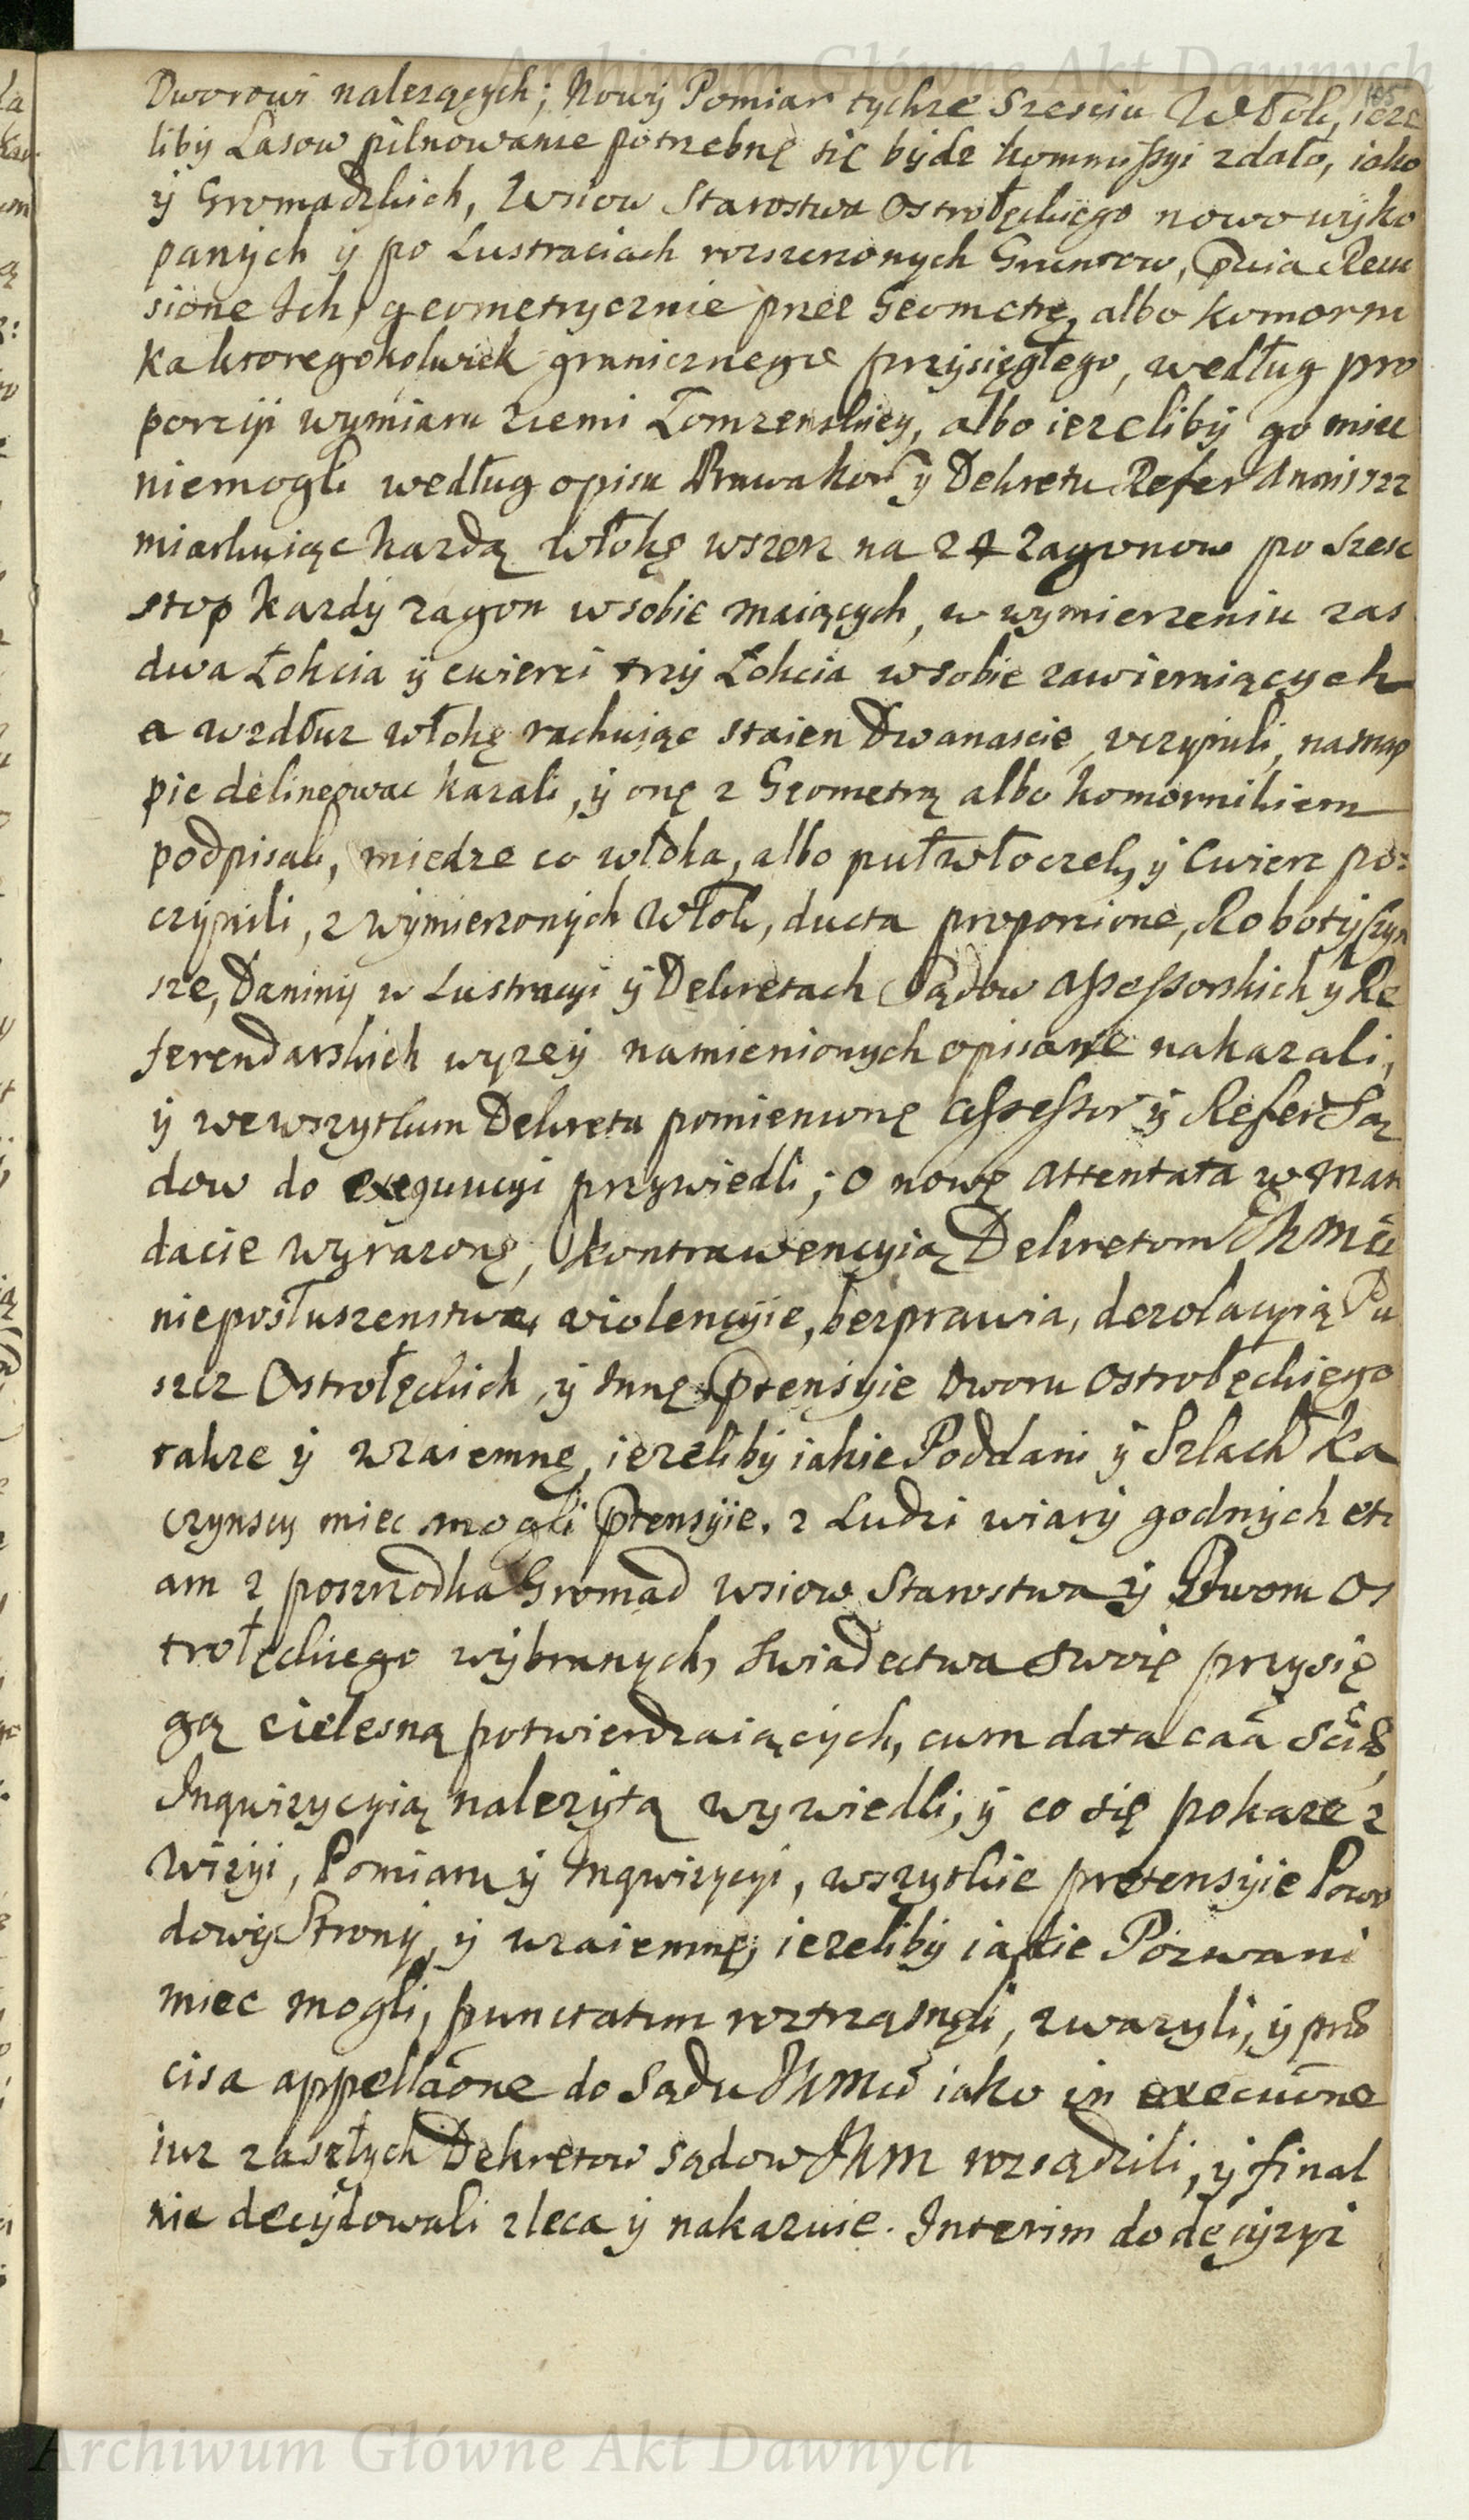 Archiwum Główne Akt Dawnych
105
Dworowi nalezących; Nowy Pomiar tychze Szesciu Włok, ieze
liby Lasow pilnowanie potrzebnę się bydz kommissyi zdało, iako
y Gromadzkich, Wsiow Starostwa Ostrołęckiego nowo wyko
panych y po Lustraciach rozszerzonych Gruntow, Reui
sione Ich, geometrycznie przez Geometrę, albo komorni
ka ktoregokolwiek granicznego przysięgłego, według pro
porcyi wymiaru ziemi Łomzenskiey, albo iezeliby go miec
niemogli według opisu Prawa kor y Dekretu Refer Anni 1722
miarkuiąc kazdą włokę wszerz na 24 zagonow po szesc
stop kazdy zagon wsobie maiących, w wymierzeniu zas
dwa Łokcia y cwierci trzy Łokcia wsobie zawieraiących
a wzdłuz włokę rachuiąc staien Dwanascie, vczynili, na map
pie delineowac kazali, y onę z Geometrą albo komornikiem
podpisali, miedze co włoka, albo pułwłoczek, y cwierc po:
czynili, z wymierzonych Włok, ducta proporcione, Roboty, Czyn
sze, Daniny w Lustracyi y Dekretach Sądow assessorskich y Re
ferendarskich wyzey namienionych opisane nakazali,
y wewszytkum Dekreta pomienionę assessor y Refer Są
dow do exequucyi przywiedli; o nowę attentata w Man
dacie wyrazonę, kontrawencyią Dekretom JKMci
nieposłuszenstwa, violencyie, bezprawia, dezolacyią Pu
szcz Ostrołęckich, y Innę ptensyie Dworu Ostrołęckiego
takze y wzaiemnę, iezeliby iakie Poddani y Szlach Ka
czynscy miec mogli ptensyie. z Ludzi wiary godnych eti
am z poszrodka Gromad wsiow Starostwa y Dworu Os
trołęckiego wybranych, swiadectwa swoię przysię
gą cielesną potwierdzaiących, cum data caa
Inqwizycyią nalezytą wywiedli, y co się pokaze z
Wizyi, Pomiaru y Inqwizycyi, wszytkie pretensyie Powo
dowy Strony, y wzaiemnę, iezeliby iakie Pozwani
miec mogli, punctatim roztrząsnęli, zwazyli, y prae
cisa appellaone do Sądu JKMci iako in executione
iuz zaszłych Dekretow sądow JKM rozsądzili, y final
nie decydowali zleca y nakazuie. Interim do decyzyi
Archiwum Główne Akt Dawnych